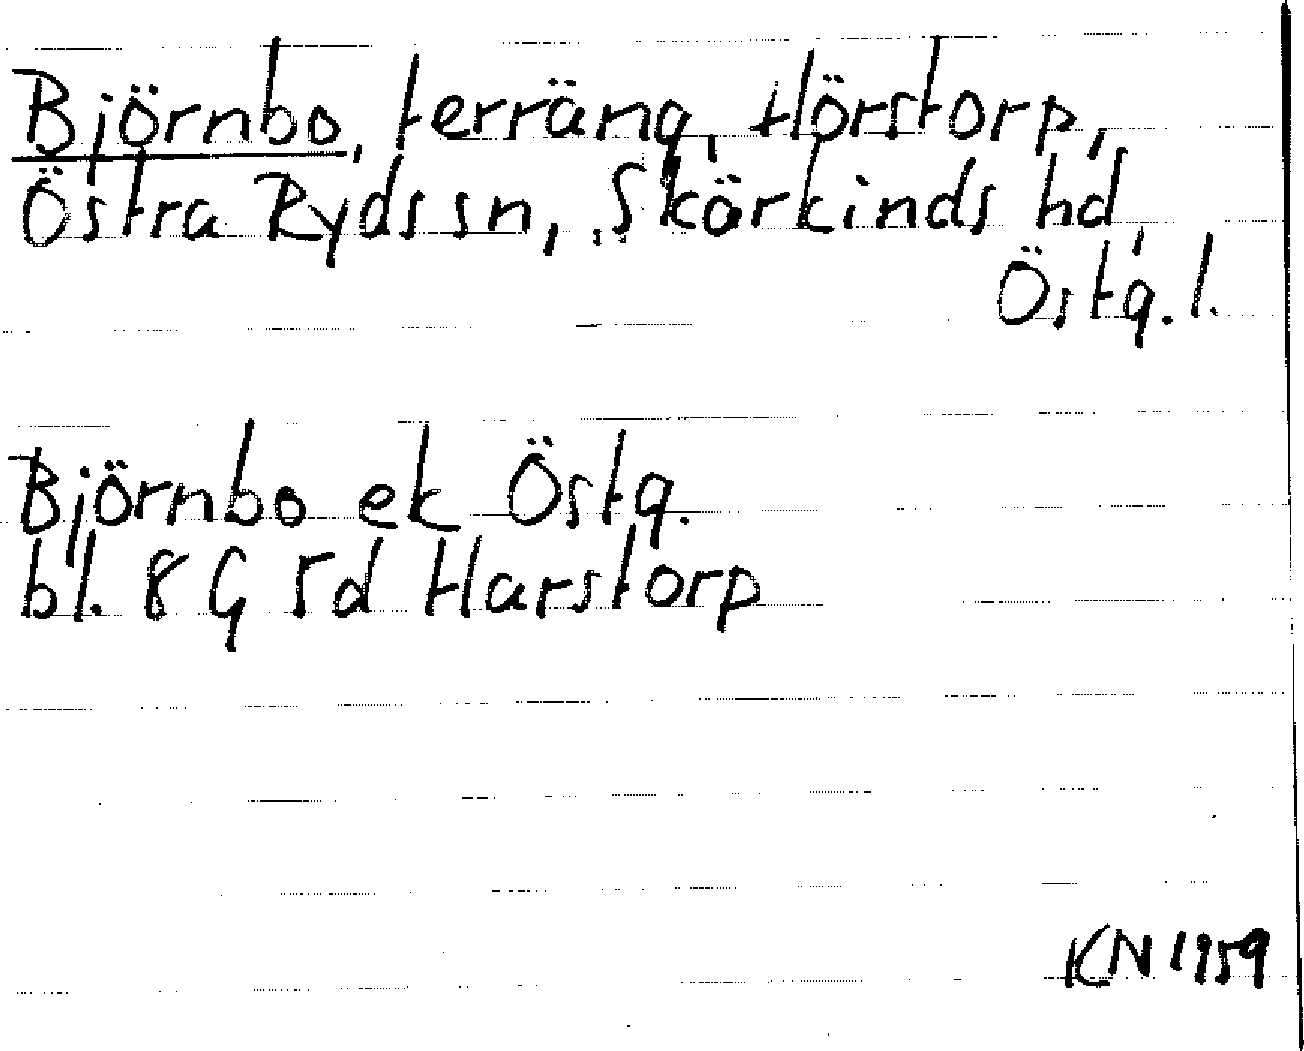 Björnbo, terräng, Hörstorp,
Östra Ryds sn, Skärkinds hd,
Östg. l.
Björnbo ek Östg.
bl. 8 G 5d Harstorp
KN 1959